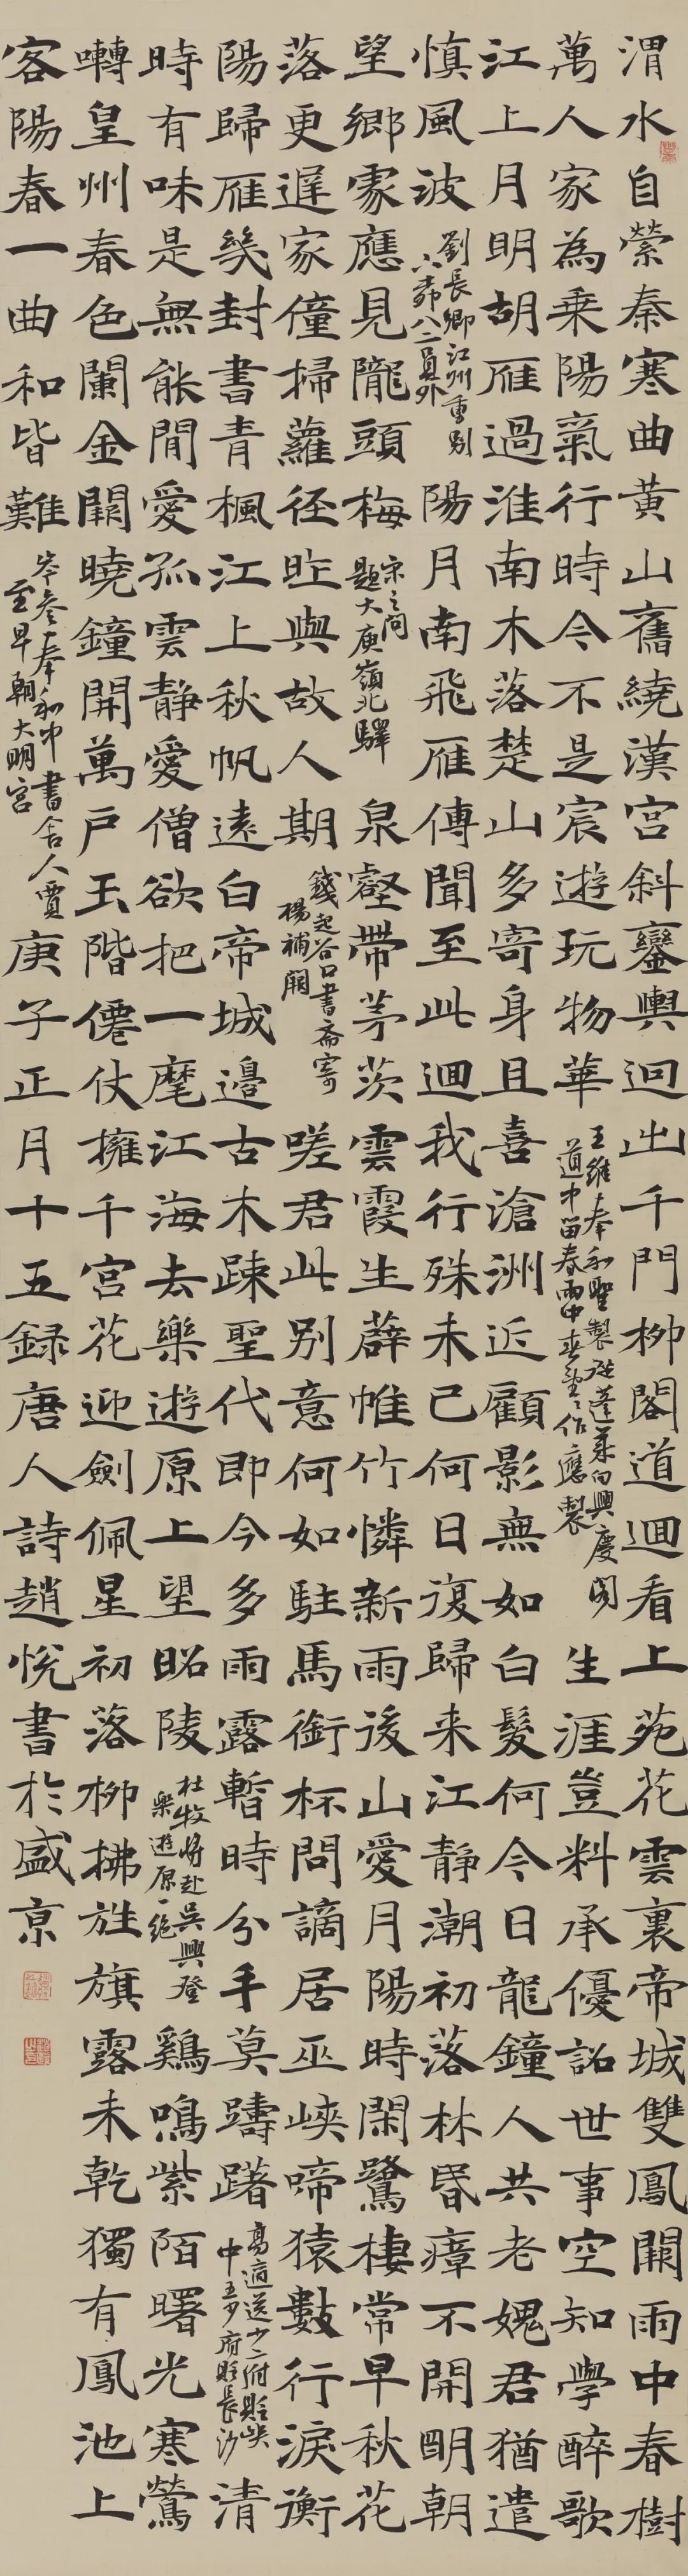 渭水自縈秦寒曲黃山舊繞漢宮斜鑾輿迥出千門柳閣道迴看上苑花雲裏帝城雙鳳闕雨中春樹
萬人家為乘陽氣行時令不是宸遊玩物華
王維奉和聖製從蓬萊向興慶閣
道中留春雨中春望之作應製
生涯豈料承優詔世事空知學醉歌
江上月明胡雁過淮南木落楚山多寄身且喜滄洲近顧影無如白髮何今日龍鐘人共老媿君猶遣
慎風波
劉長卿江州重别
六柳八二員外
陽月南飛雁傳聞至此迴我行殊未已何日復歸来江靜潮初落林昏瘴不開明朝
望鄉處應見隴頭梅
宋之问
題大庾嶺北驛
泉壑帶茅茨雲霞生薜帷竹憐新雨後山愛月陽時閑鷺棲常早秋花
落更遲家僮掃蘿徑昨與故人期
錢起谷口書齋寄
楊補闕
嗟君此别意何如駐馬銜杯問謫居巫峽啼猿數行淚衡
陽歸雁幾封書青楓江上秋帆遠白帝城邊古木疎聖代即今多雨露暫時分手莫躊躇
高適送少二府貶峡
中王少府貶長沙
清
時有味是無能閒愛孤雲靜愛僧欲把一麾江海去樂遊原上望昭陵
杜牧將赴吳興登
樂遊原一絕
鷄鳴紫陌曙光寒鶯
囀皇州春色闌金闕曉鐘開萬戶玉階僊仗擁千宮花迎劍佩星初落柳拂旌旗露未乾獨有鳳池上
客陽春一曲和皆難
岑參奉和中書舍人賈
至早朝大明宮
庚子正月十五録唐人詩趙悅書於盛京